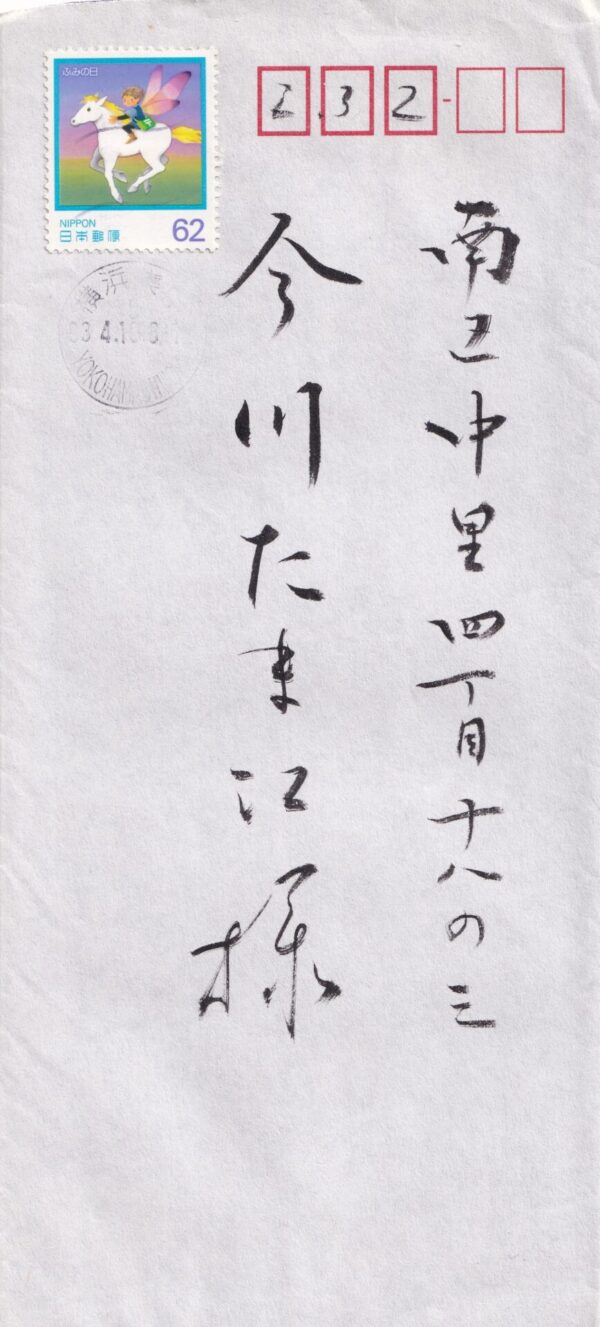 ふみの日
NIPPON
日本郵便
62
232
南区中里四丁目十八の三
今川たま江様
横浜
3 4.10
YOKOHAMA